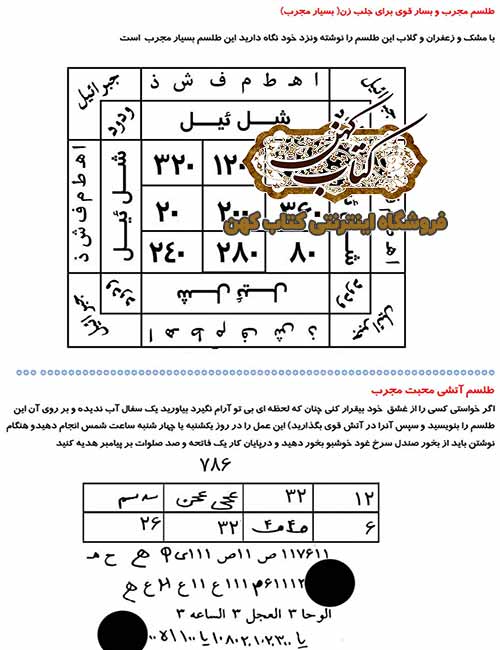 طلسم مجرب و بسار قوی برای جلب زن( بسیار مجرب)
با مشک و زعفران و گلاب این طلسم را نوشته ونزد خود نگاه دارید این طلسم بسیار مجرب است
جبرائیل ا ه ط م ف ش ذ جبرائیل
ودود شل ئیل
ا ه ط م ف ش ذ شل ئیل ۳۲۰ ۱۲۰
کتاب کهن
۲۰ ۲۰۰ ۳۶۰
فروشگاه اینترنتی کتاب کهن
۲۴۰ ۲۸۰ ۸۰
ودود شل ئیل ودود
جبرائیل ا ه ط م ف ش ذ جبرائیل
طلسم آتشی محبت مجرب
اگر خواستی کسی را از عشق خود بیقرار کنی چنان که لحظه ای بی تو آرام نگیرد بیاورید یک سفال آب ندیده و بر روی آن این
طلسم را بنویسید و سپس آنرا در آتش قوی بگذارید) این عمل را در روز یکشنبه یا چهار شنبه ساعت شمس انجام دهیدو هنگام
نوشتن باید از بخور صندل سرخ عود خوشبو بخور دهید و درپایان کار یک فاتحه و صد صلوات بر پیامبر هدیه کنید
۷۸۶
۱۲ ۳۲
۶ ۳۲ ۲۶
۱۱۷۶۱۱ ص ۱۱ص ۱۱۱ی
الوحا ۳ العجل ۳ الساعه ۳